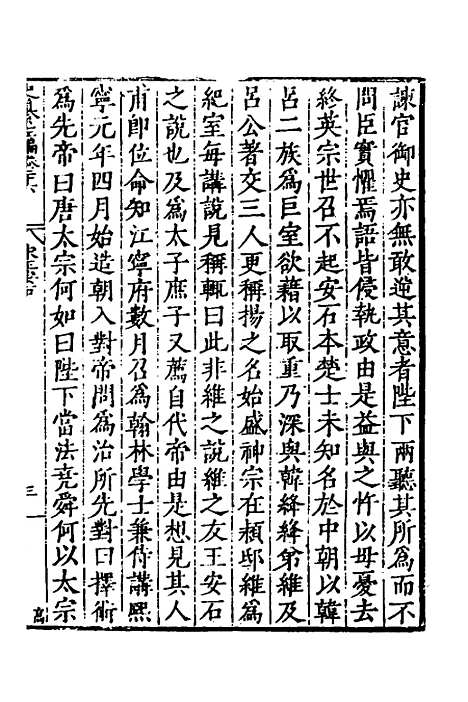 諫官御史亦無敢逆其意者陛下兩聽其所為而不
問臣實懼焉語皆侵執政由是益與之忤以母憂去
終英宗世召不起安石本楚士未知名於中朝以韓
呂二族為巨室欲藉以取重乃深與韓絳絳弟維及
呂公著交三人更稱揚之名始盛神宗在頴邸維為
紀室每講說見稱輒曰此非維之說維之友王安石
之說也及為太子庶子又薦自代帝由是想見其人
甫即位命知江寧府數月召為翰林學士兼侍講熈
寧元年四月始造朝入對帝問為治所先對曰擇術
為先帝曰唐太宗何如曰陛下當法堯舜何以太宗
三